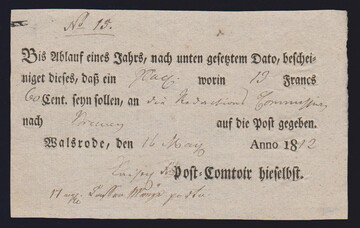 No. 13.
Bis Ablauf eines Jahrs, nach unten gesetztem Dato, beschei-
niget dieses, daß ein Pack. worin 13 Francs
60 Cent. seyn sollen, an die Redactions Commission
nach Bremen auf die Post gegeben.
Walsrode, den 16 May Anno 1812
Post-Comtoir hieselbst.